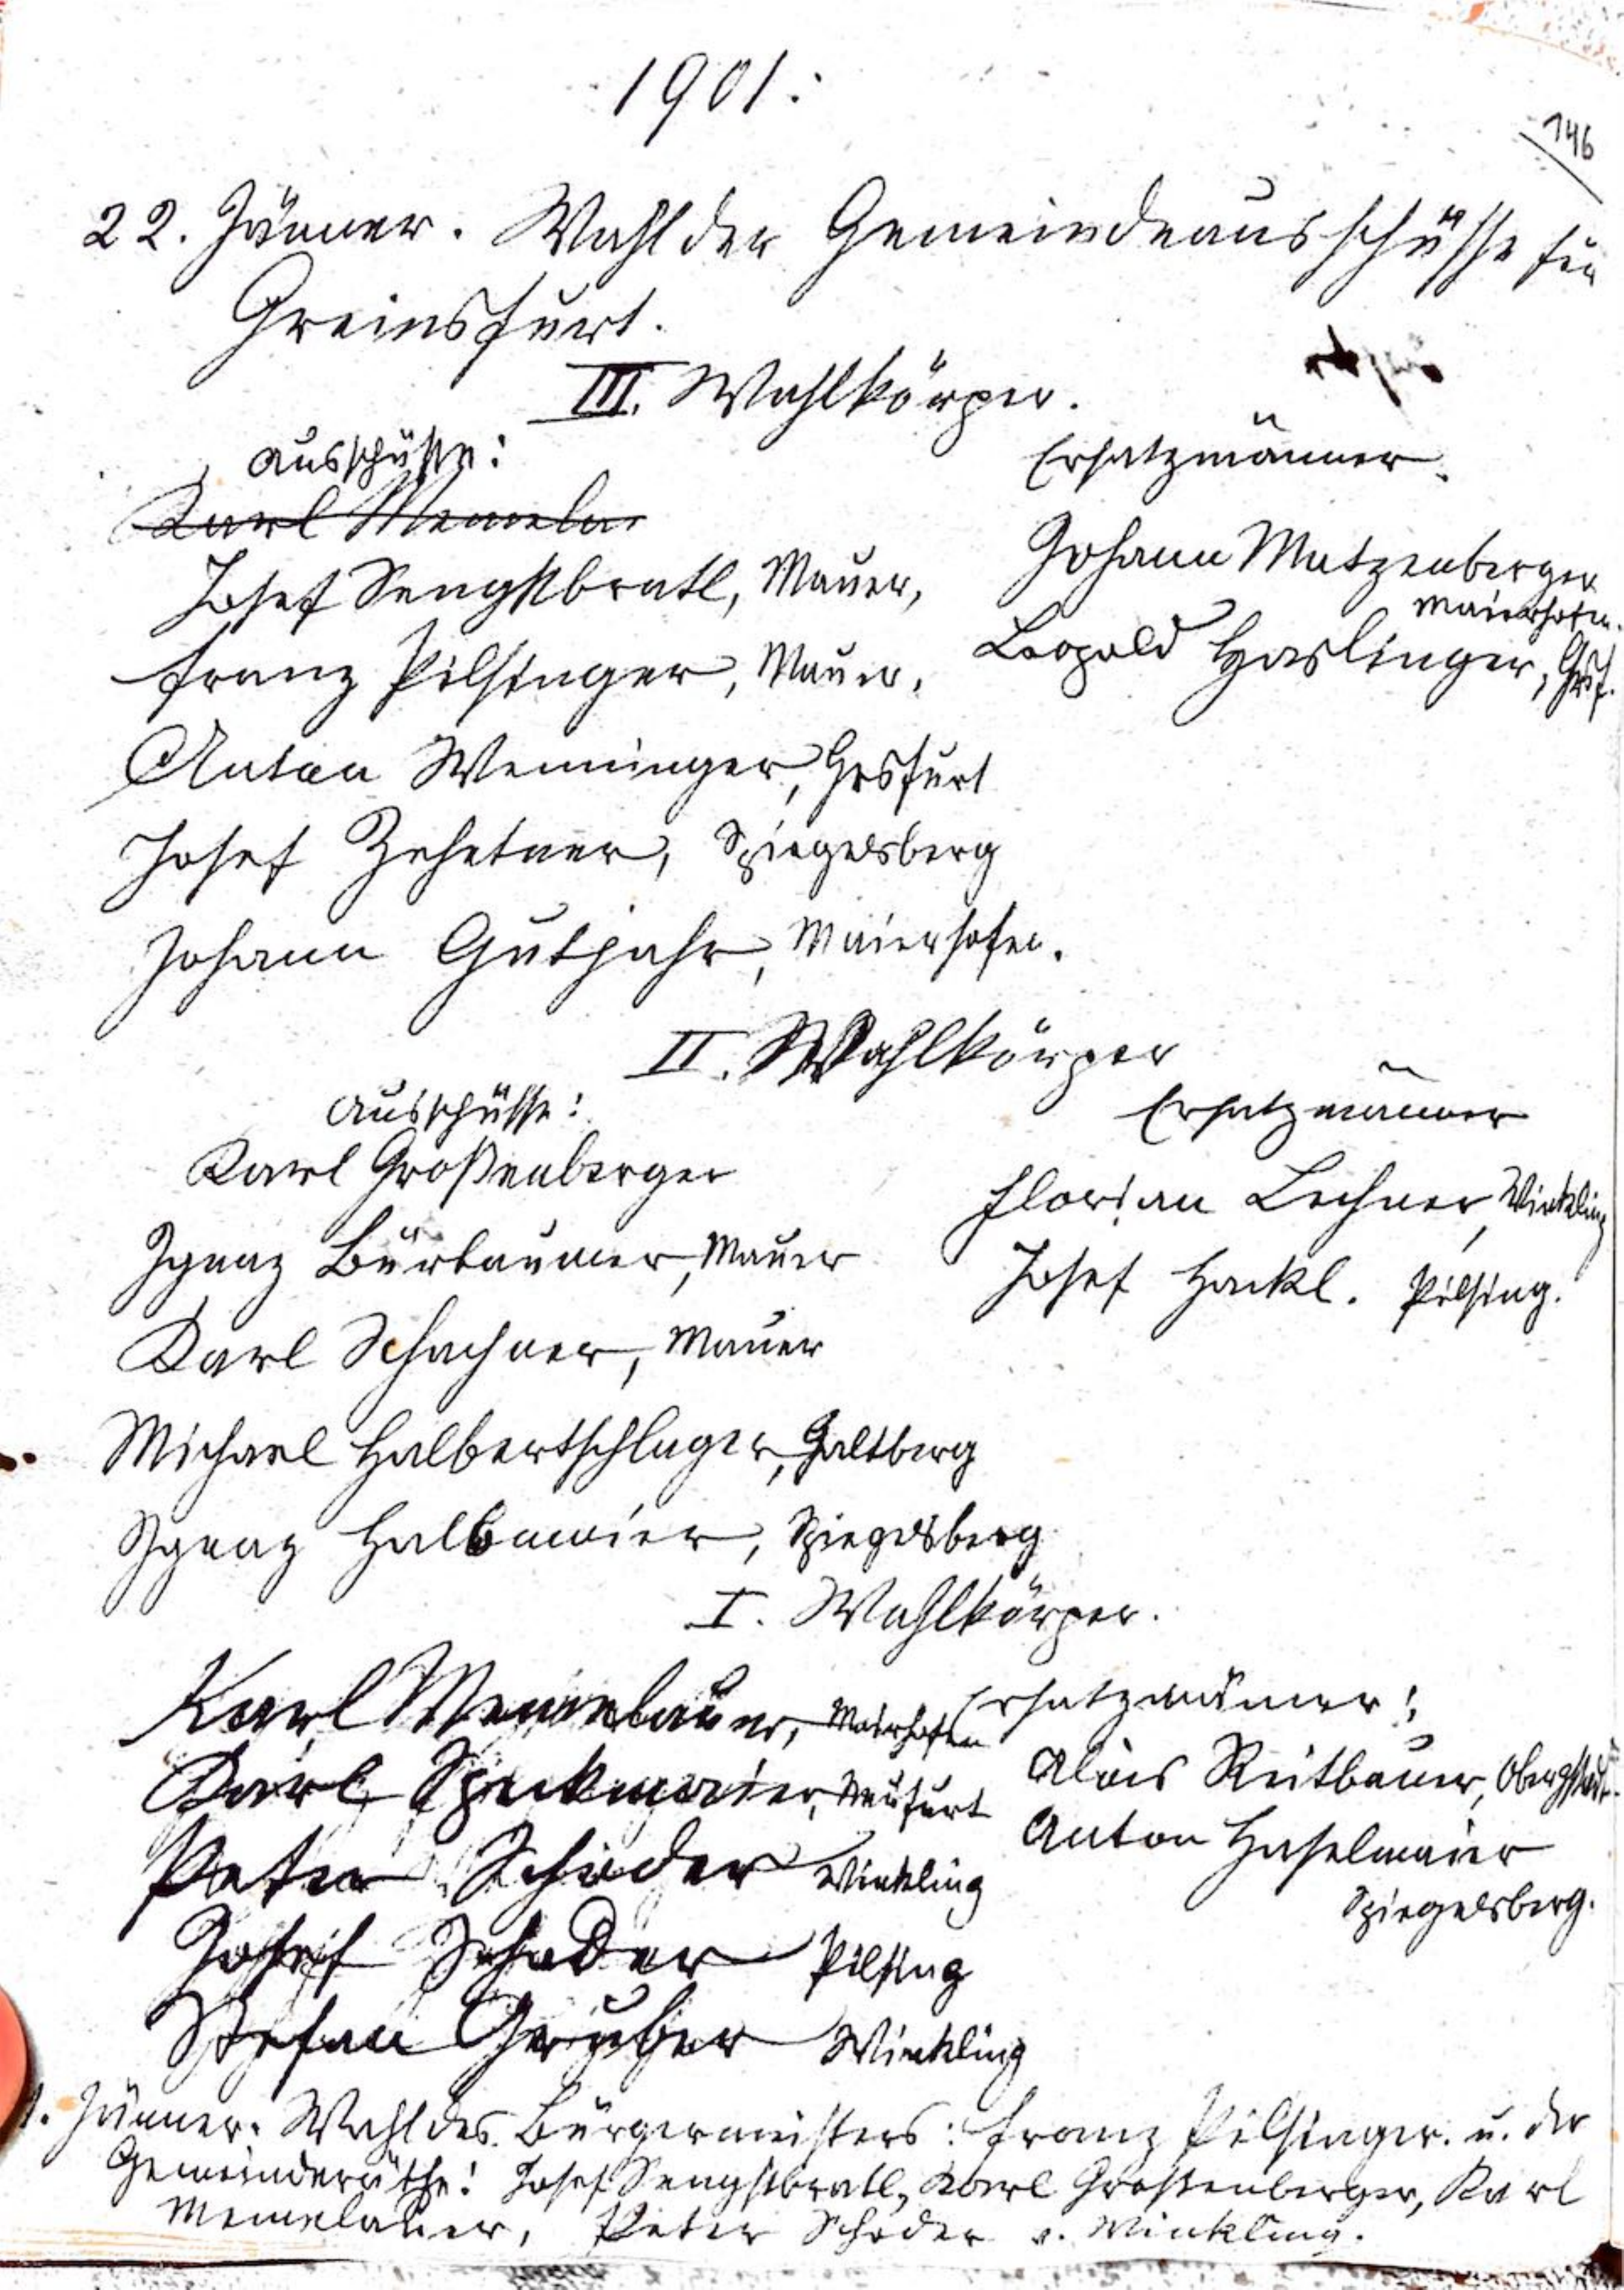 1901:
146
22. Jänner. Wahl der Gemeindeausschüsse für
Greinsfurt.
III. Wahlkörper.
Ausschüsse:
Karl Memela
Josef Sengstbratl, Mauer,
Franz Pilsinger, Mauer,
Anton Wenninger, Grsfurt
Josef Zehetner, Spiegelsberg
Johann Gutjahr, Maierhofen.
Ersatzmänner.
Johann Matzenberger
Maierhofen.
Leopold Haslinger, Grsf.
II. Wahlkörper
Ausschüsse:
Karl Großenberger
Ignaz Bürbaumer, Mauer
Karl Schachner, Mauer
Michael Halbertschlager, Galtberg
Ignaz Halbmaier, Spiegelsberg
Ersatzmänner
Florian Lechner, Winkling
Josef Hackl. Pilsing.
I. Wahlkörper.
Karl Memelauer, Maierhofen
Karl Speckmaier, Neufurt
Peter Schoder Winkling
Josef Schoder Pilsing
Stefan Gruber Winkling
Ersatzmänner:
Alois Reitbauer,
Anton Haselmaier
Spiegelsberg.
1. Jänner. Wahl des Bürgermeisters: Franz Pilsinger. u. der
Gemeinderäthe: Josef Sengstbratl, Karl Großenberger, Karl
Memelauer, Peter Schoder v. Winkling.